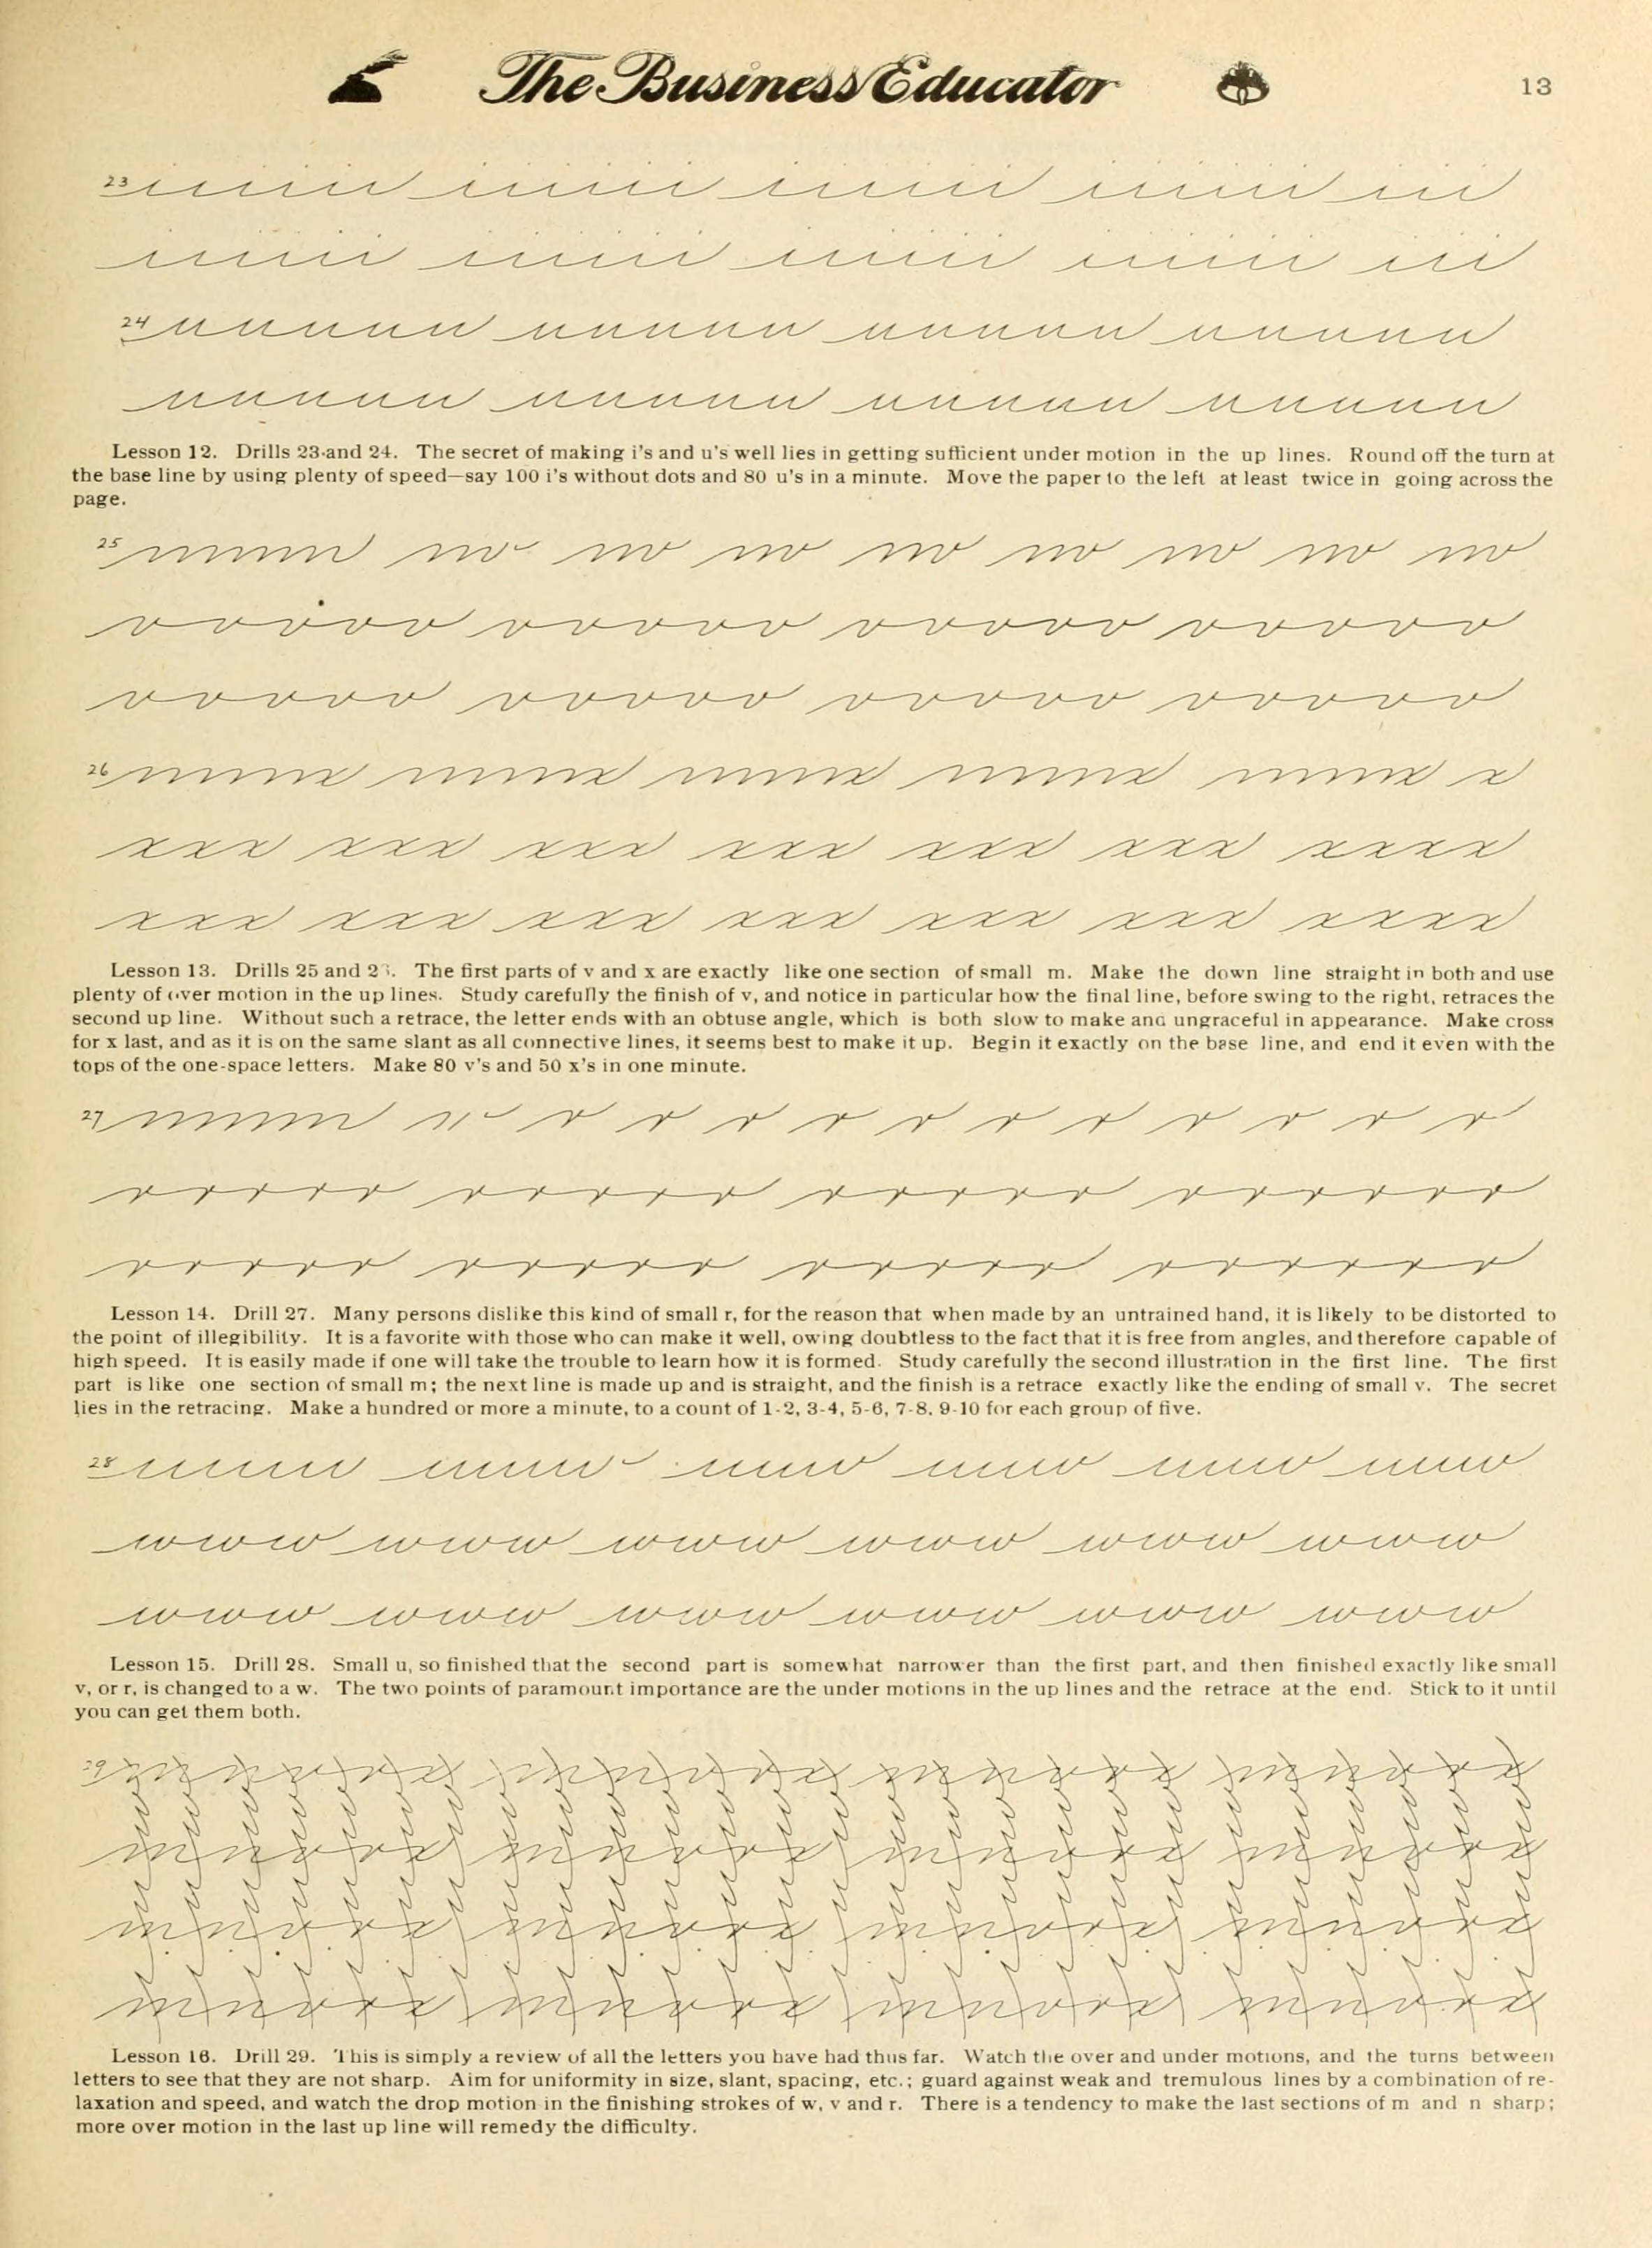 The Business Educator
13
23 iiiii iiiii iiiii iiiii iii
iiiii iiiii iiiii iiiii iii
24 uuuuu uuuuu uuuuu uuuuu
uuuuu uuuuu uuuuu uuuuu
Lesson 12. Drills 23 and 24. The secret of making i's and u's well lies in getting sufficient under motion in the up lines. Round off the turn at
the base line by using plenty of speed—say 100 i's without dots and 80 u's in a minute. Move the paper to the left at least twice in going across the
page.
25
vvvvv vvvvv vvvvv vvvvv
vvvvv vvvvv vvvvv vvvvv
26 x
xxx xxx xxx xxx xxx xxx xxxx
xxx xxx xxx xxx xxx xxx xxxx
Lesson 13. Drills 25 and 2 . The first parts of v and x are exactly like one section of small m. Make the down line straight in both and use
plenty of over motion in the up lines. Study carefully the finish of v, and notice in particular how the final line, before swing to the right, retraces the
second up line. Without such a retrace, the letter ends with an obtuse angle, which is both slow to make and ungraceful in appearance. Make cross
for x last, and as it is on the same slant as all connective lines, it seems best to make it up. Begin it exactly on the base line, and end it even with the
tops of the one-space letters. Make 80 v's and 50 x's in one minute.
27 r r r r r r r r r r r
rrrrr rrrrr rrrrr rrrrrr
rrrrr rrrrr rrrrr rrrrrr
Lesson 14. Drill 27. Many persons dislike this kind of small r, for the reason that when made by an untrained hand, it is likely to be distorted to
the point of illegibility. It is a favorite with those who can make it well, owing doubtless to the fact that it is free from angles, and therefore capable of
high speed. It is easily made if one will take the trouble to learn how it is formed. Study carefully the second illustration in the first line. The first
part is like one section of small m; the next line is made up and is straight, and the finish is a retrace exactly like the ending of small v. The secret
lies in the retracing. Make a hundred or more a minute, to a count of 1-2, 3-4, 5-6, 7-8, 9-10 for each group of five.
28
www www www www www www
www www www www www www
Lesson 15. Drill 28. Small u, so finished that the second part is somewhat narrower than the first part, and then finished exactly like small
v, or r, is changed to a w. The two points of paramount importance are the under motions in the up lines and the retrace at the end. Stick to it until
you can get them both.
29 mnvrx mnvrx mnvrx mnvrx
mnvrx mnvrx mnvrx mnvrx
mnvrx mnvrx mnvrx mnvrx
mnvrx mnvrx mnvrx mnvrx
Lesson 16. Drill 29. This is simply a review of all the letters you have had thus far. Watch the over and under motions, and the turns between
letters to see that they are not sharp. Aim for uniformity in size, slant, spacing, etc.; guard against weak and tremulous lines by a combination of re-
laxation and speed, and watch the drop motion in the finishing strokes of w, v and r. There is a tendency to make the last sections of m and n sharp;
more over motion in the last up line will remedy the difficulty.